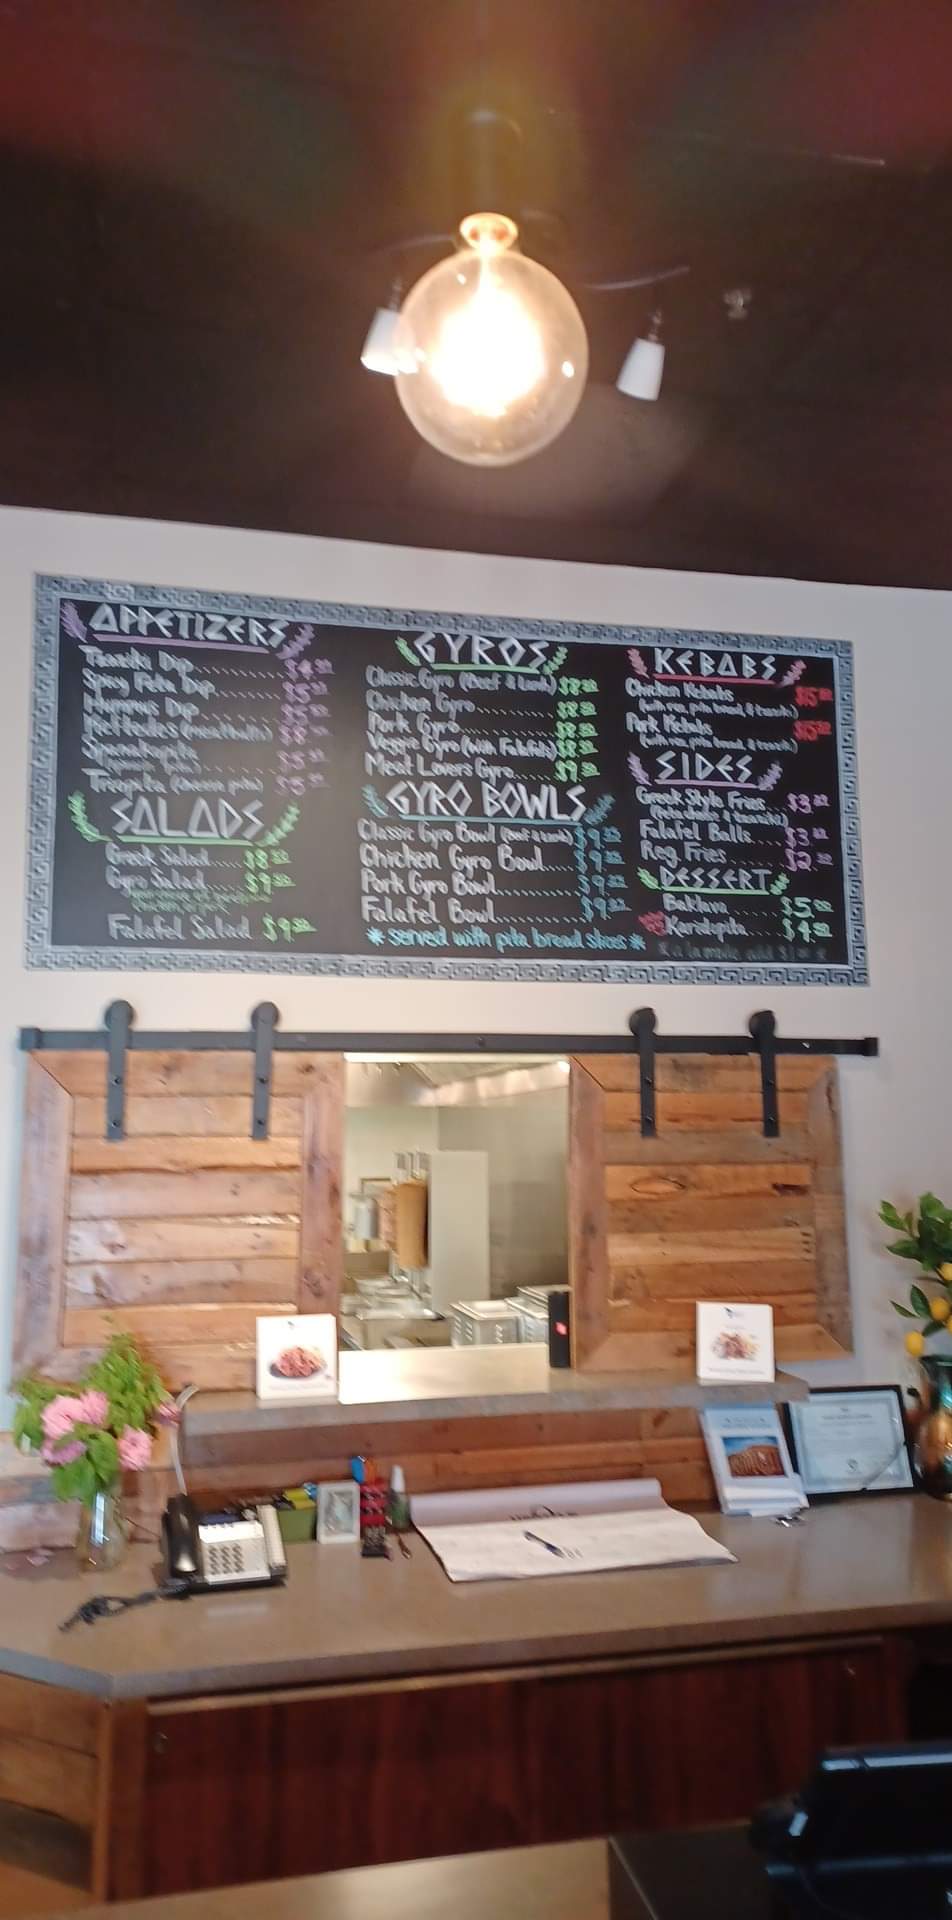 APPETIZERS
Tzatziki Dip........ $4
Spicy Feta Dip........ $5
Hummus Dip........ $5
Keftedes (meatballs) $8
Spanakopita
........ $5
Tiropita (cheese pita) $5
SALADS
Greek Salad..... $8
Gyro Salad..... $9
Falafel Salad $9
GYROS
Classic Gyro (Beef & Lamb) $8
Chicken Gyro.......... $8
Pork Gyro............ $8
Veggie Gyro (with Falafels) $8
Meat Lovers Gyro..... $9
GYRO BOWLS
Classic Gyro Bowl (Beef & Lamb) $9
Chicken Gyro Bowl.... $9
Pork Gyro Bowl.......... $9
Falafel Bowl........... $9
* served with pita bread slices *
KEBABS
Chicken Kebabs $15
(with rice, pita bread, & tzatziki)
Pork Kebabs $15
(with rice, pita bread, & tzatziki)
SIDES
Greek Style Fries... $3
Falafel Balls.... $3
Reg. Fries....... $2
DESSERT
Baklava....... $5
Karidopita..... $4
* a la mode, add $1 *